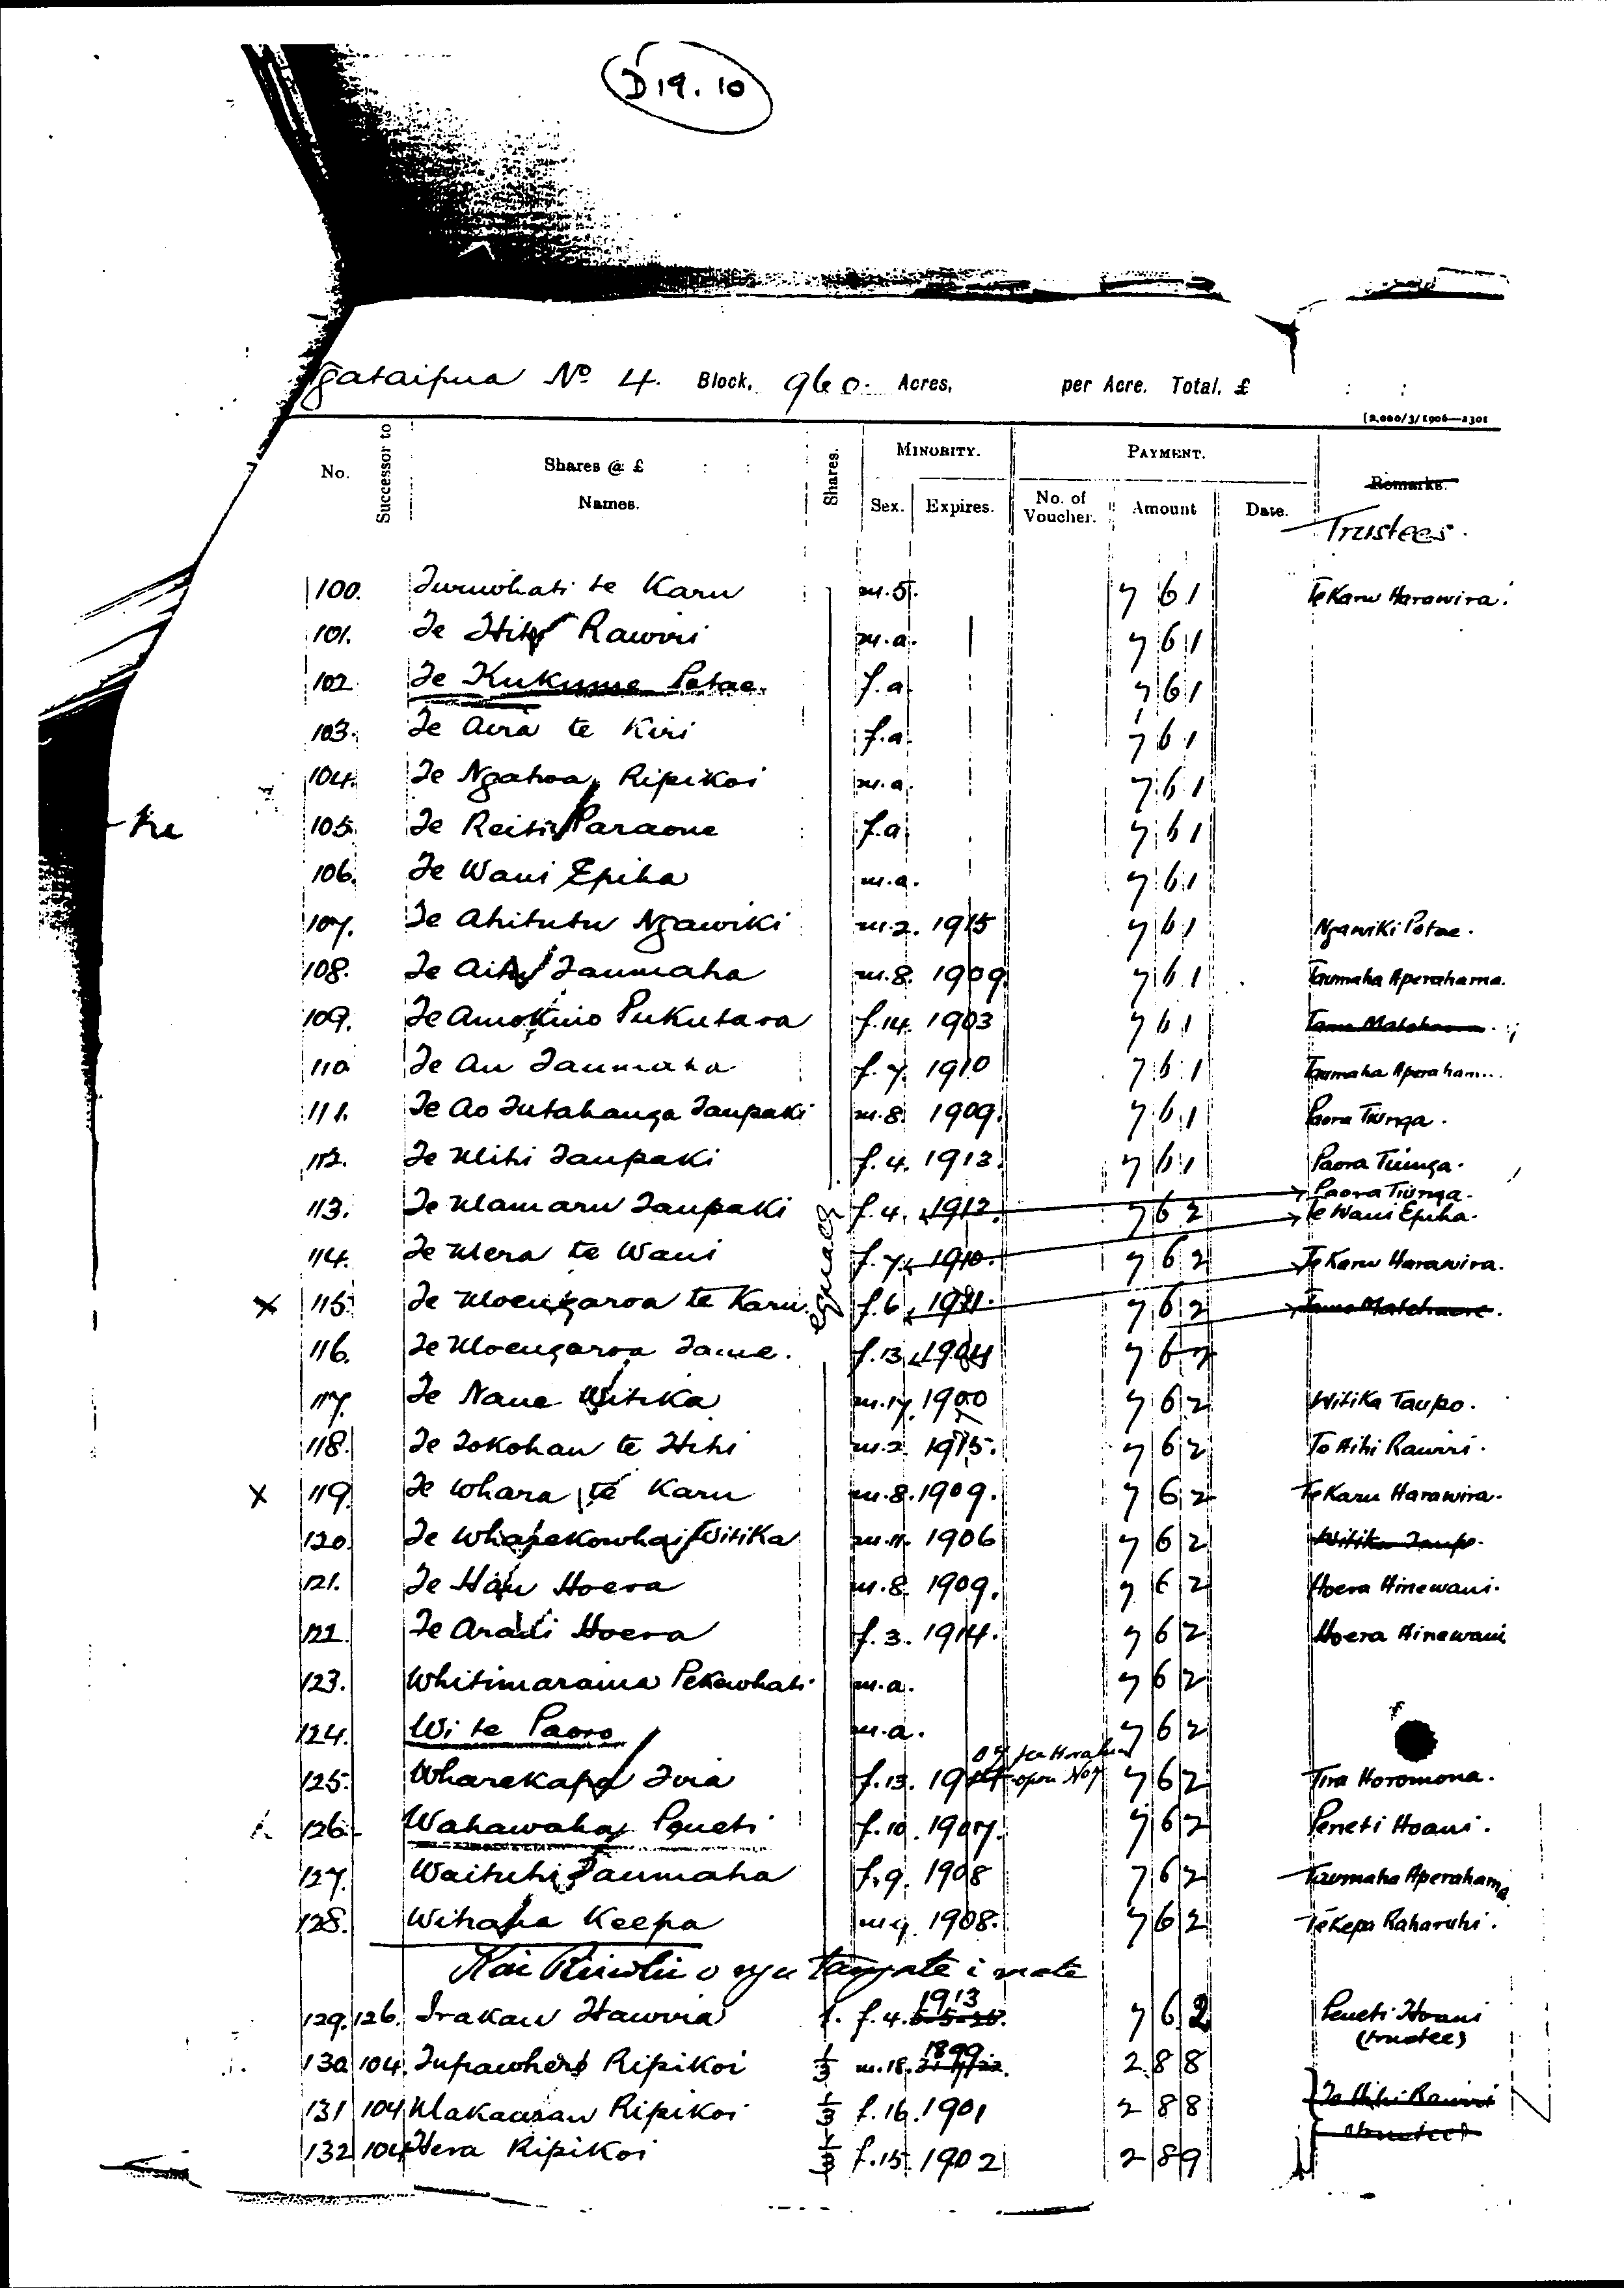 D19.10
gataipua No 4. Block, 960. Acres, per Acre. Total, £ : :
[2,000/3/1906—2301
No. Successor to Shares @ £ : : Names. Shares. MINORITY. Sex. Expires. PAYMENT. No. of Voucher. Amount Date. Remarks.
Trustees.
100. Turuwhati te Karu m.5. 7 6 1 Te Karu Harawira.
101. Te Hihi Rawiri m.a. 7 6 1
102 Te Kukume Potae. f.a. 7 6 1
103. Te Aira te Kiri f.a. 7 6 1
104. Te Ngahoa Ripikoi m.a. 7 6 1
105. Te Reiti Paraone f.a. 7 6 1
106. Te Wani Epiha m.a. 7 6 1
107. Te Ahitutu Ngawiki m.2. 1915 7 6 1 Ngawiki Potae.
108. Te Aihu Taumaha m.8. 1909. 7 6 1 Taumaha Aperahama.
109. Te Amokino Pukutara f.14. 1903 7 6 1
110 Te Au Taumaha f.7. 1910 7 6 1 Taumaha Aperaham...
111. Te Ao Tutahanga Taupaki m.8. 1909. 7 6 1 Paora Tiunga.
112. Te Mihi Taupaki f.4. 1913. 7 6 1 Paora Tiunga.
113. Te Mamaru Taupaki f.4. 1913. 7 6 2 Paora Tiunga.
equally
Te Wani Epiha.
114. Te Mera te Wani f.7. 1910. 7 6 2 Te Karu Harawira.
x 115. Te Moengaroa te Karu. f.6. 1911. 7 6 2 Tame Matehaere.
116. Te Moengaroa Tame. f.13. 1904 7 6 2
117. Te Naua Witika m.17. 1900 7 6 2 Witika Taupo.
118. Te Tokohau te Hihi m.2. 1915. 7 6 2 Te Hihi Rawiri.
x 119. Te Whara te Karu m.8. 1909. 7 6 2 Te Karu Harawira.
120. Te Wharekowhai Witika m.11. 1906 7 6 2 Witika Taupo.
121. Te Hau Hoera m.8. 1909. 7 6 2 Hoera Hinewani.
122. Te Arahi Hoera f.3. 1914. 7 6 2 Hoera Hinewani
123. Whitimarama Pekawhati m.a. 7 6 2
124. Wi te Paoro m.a. 7 6 2
125. Wharekapo Tira f.13. 7 6 2 Tira Horomona.
126. Wahawaha Peneti f.10. 1907. 7 6 2 Peneti Hoani.
127. Waituhi Taumaha f.9. 1908 7 6 2 Taumaha Aperahama
128. Wihapa Keepa m.9. 1908. 7 6 2 Te Kepa Raharuhi.
Kai Riiwhi o nga tangata i mate
129. 126. Irakau Hawira 1. f.4. 1913 7 6 2 Peneti Hoani
(trustee)
130 104. Tupawhero Ripikoi 1/3 m.18. 1899 2 8 8
131 104 Makaurau Ripikoi 1/3 f.16. 1901 2 8 8 Te Hihi Rawiri
(trustee)
132 104 Hera Ripikoi 1/3 f.15. 1902 2 8 9